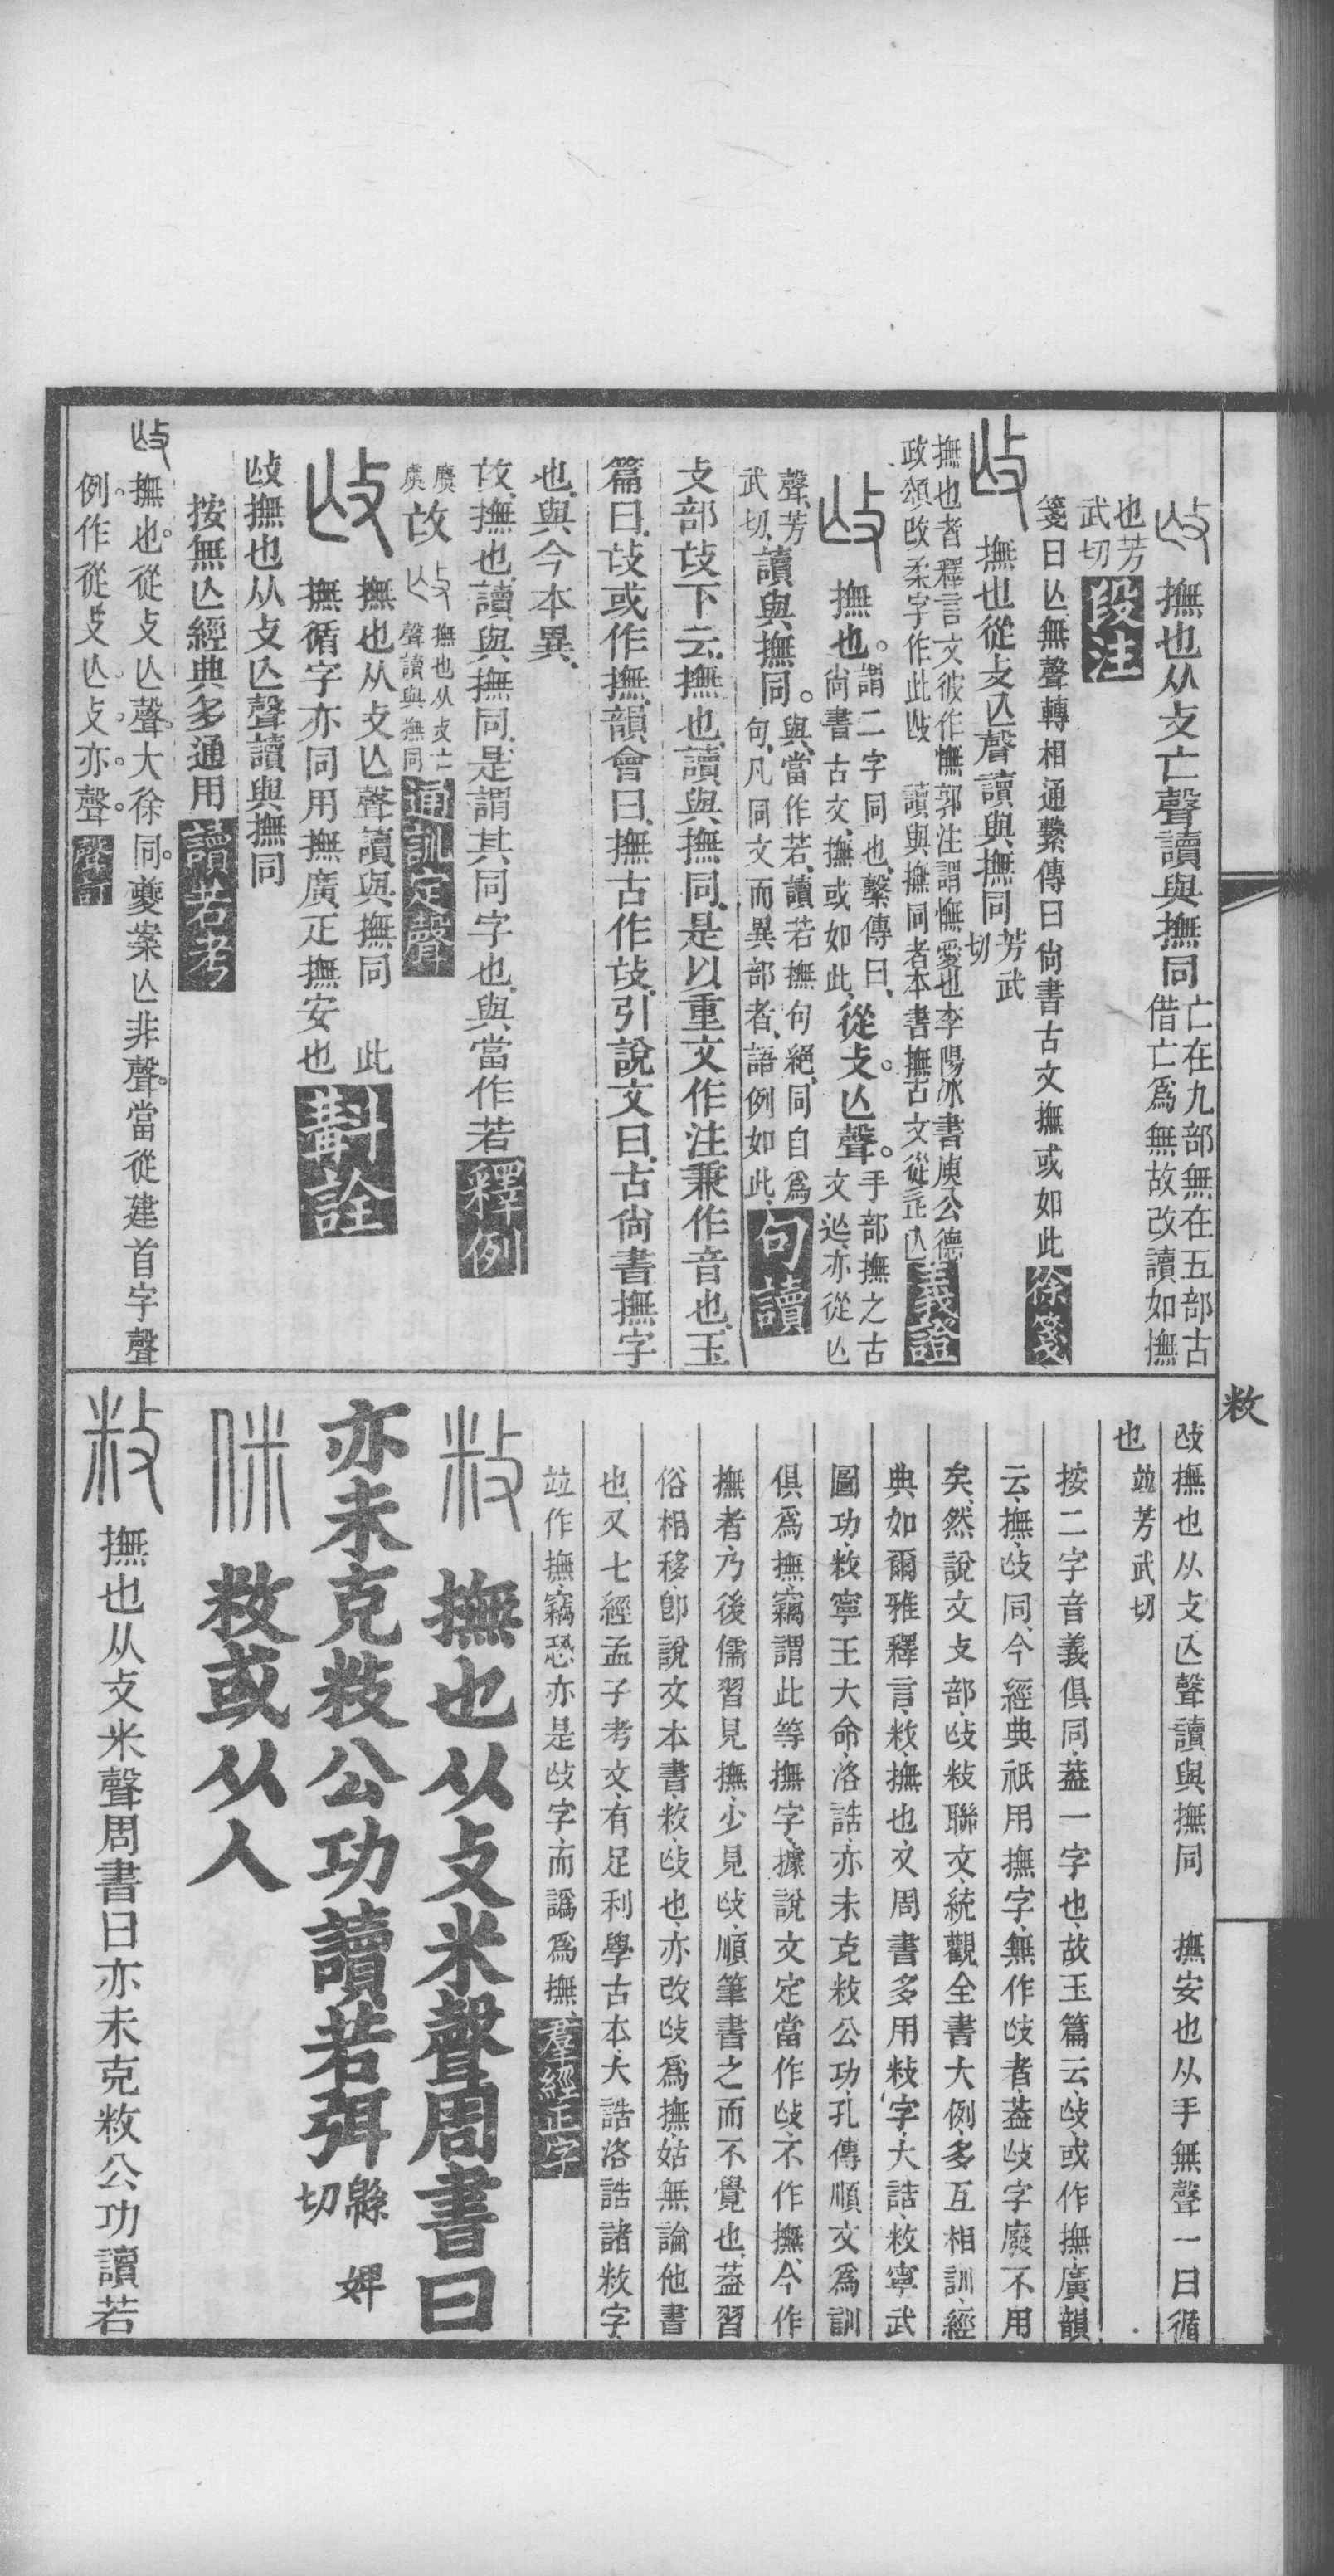 撫也从攴亡聲讀與撫同亡在九部無在五部古
借亡爲無故改讀如撫
也芳
武切段注
箋曰亾無聲轉相通繫傳曰尙書古文撫或如此徐箋
撫也從攴亾聲讀與撫同芳武
切
撫也者釋言文彼作憮郭注謂憮愛也李陽冰書庾公德
政頌改柔字作此㪅 讀與撫同者本書撫古文從辵亾義證
撫也。謂二字同也、繫傳曰、
尙書古文、撫或如此、從攴。亾聲。手部撫之古
文𢓊亦從亾
聲、芳
武切、讀與撫同。與、當作若、讀若撫句絕、同自爲
句、凡同文而異部者、語例如此、句讀
攴部㪅下云、撫也、讀與撫同、是以重文作注兼作音也、玉
篇曰、㪅或作撫、韻會曰、撫古作㪅、引說文曰、古尙書撫字
也、與今本異、
㪅、撫也、讀與撫同、是謂其同字也、與當作若釋例
撫也从攴亡
聲讀與撫同通訓定聲
撫也从攴亾聲讀與撫同 此
撫循字亦同用撫廣疋撫安也斠詮
㪅撫也从攴亾聲讀與撫同
按無亾經典多通用讀若考
撫也。從攴亾聲。大徐同。夔案亾非聲。當從建首字聲
例作從攴亾。攴亦聲。
㪅撫也从攴亾聲讀與撫同 撫安也从手無聲一曰循
也 竝芳武切
按二字音義俱同、葢一字也、故玉篇云、㪅、或作撫、廣韻
云、撫、㪅同、今經典祇用撫字、無作㪅者、葢㪅字廢不用
矣、然說文攴部、㪅敉聯文、統觀全書大例、多互相訓、經
典如爾雅釋言、敉、撫也、又周書多用敉字、大誥、敉寧武
圖功、敉寧王大命、洛誥、亦未克敉公功、孔傳順文爲訓
俱爲撫、竊謂此等撫字、據說文定當作㪅、不作撫、今作
撫者、乃後儒習見撫、少見㪅、順筆書之而不覺也、葢習
俗相移、卽說文本書、敉、㪅也、亦改㪅爲撫、姑無論他書
也、又七經孟子考文、有足利學古本、大誥洛誥諸敉字、
竝作撫、竊恐亦是㪅字、而譌爲撫、羣經正字
撫也从攴米聲周書曰
亦未克敉公功讀若弭緜婢
切
敉或从人
撫也从攴米聲周書曰亦未克敉公功讀若
敉